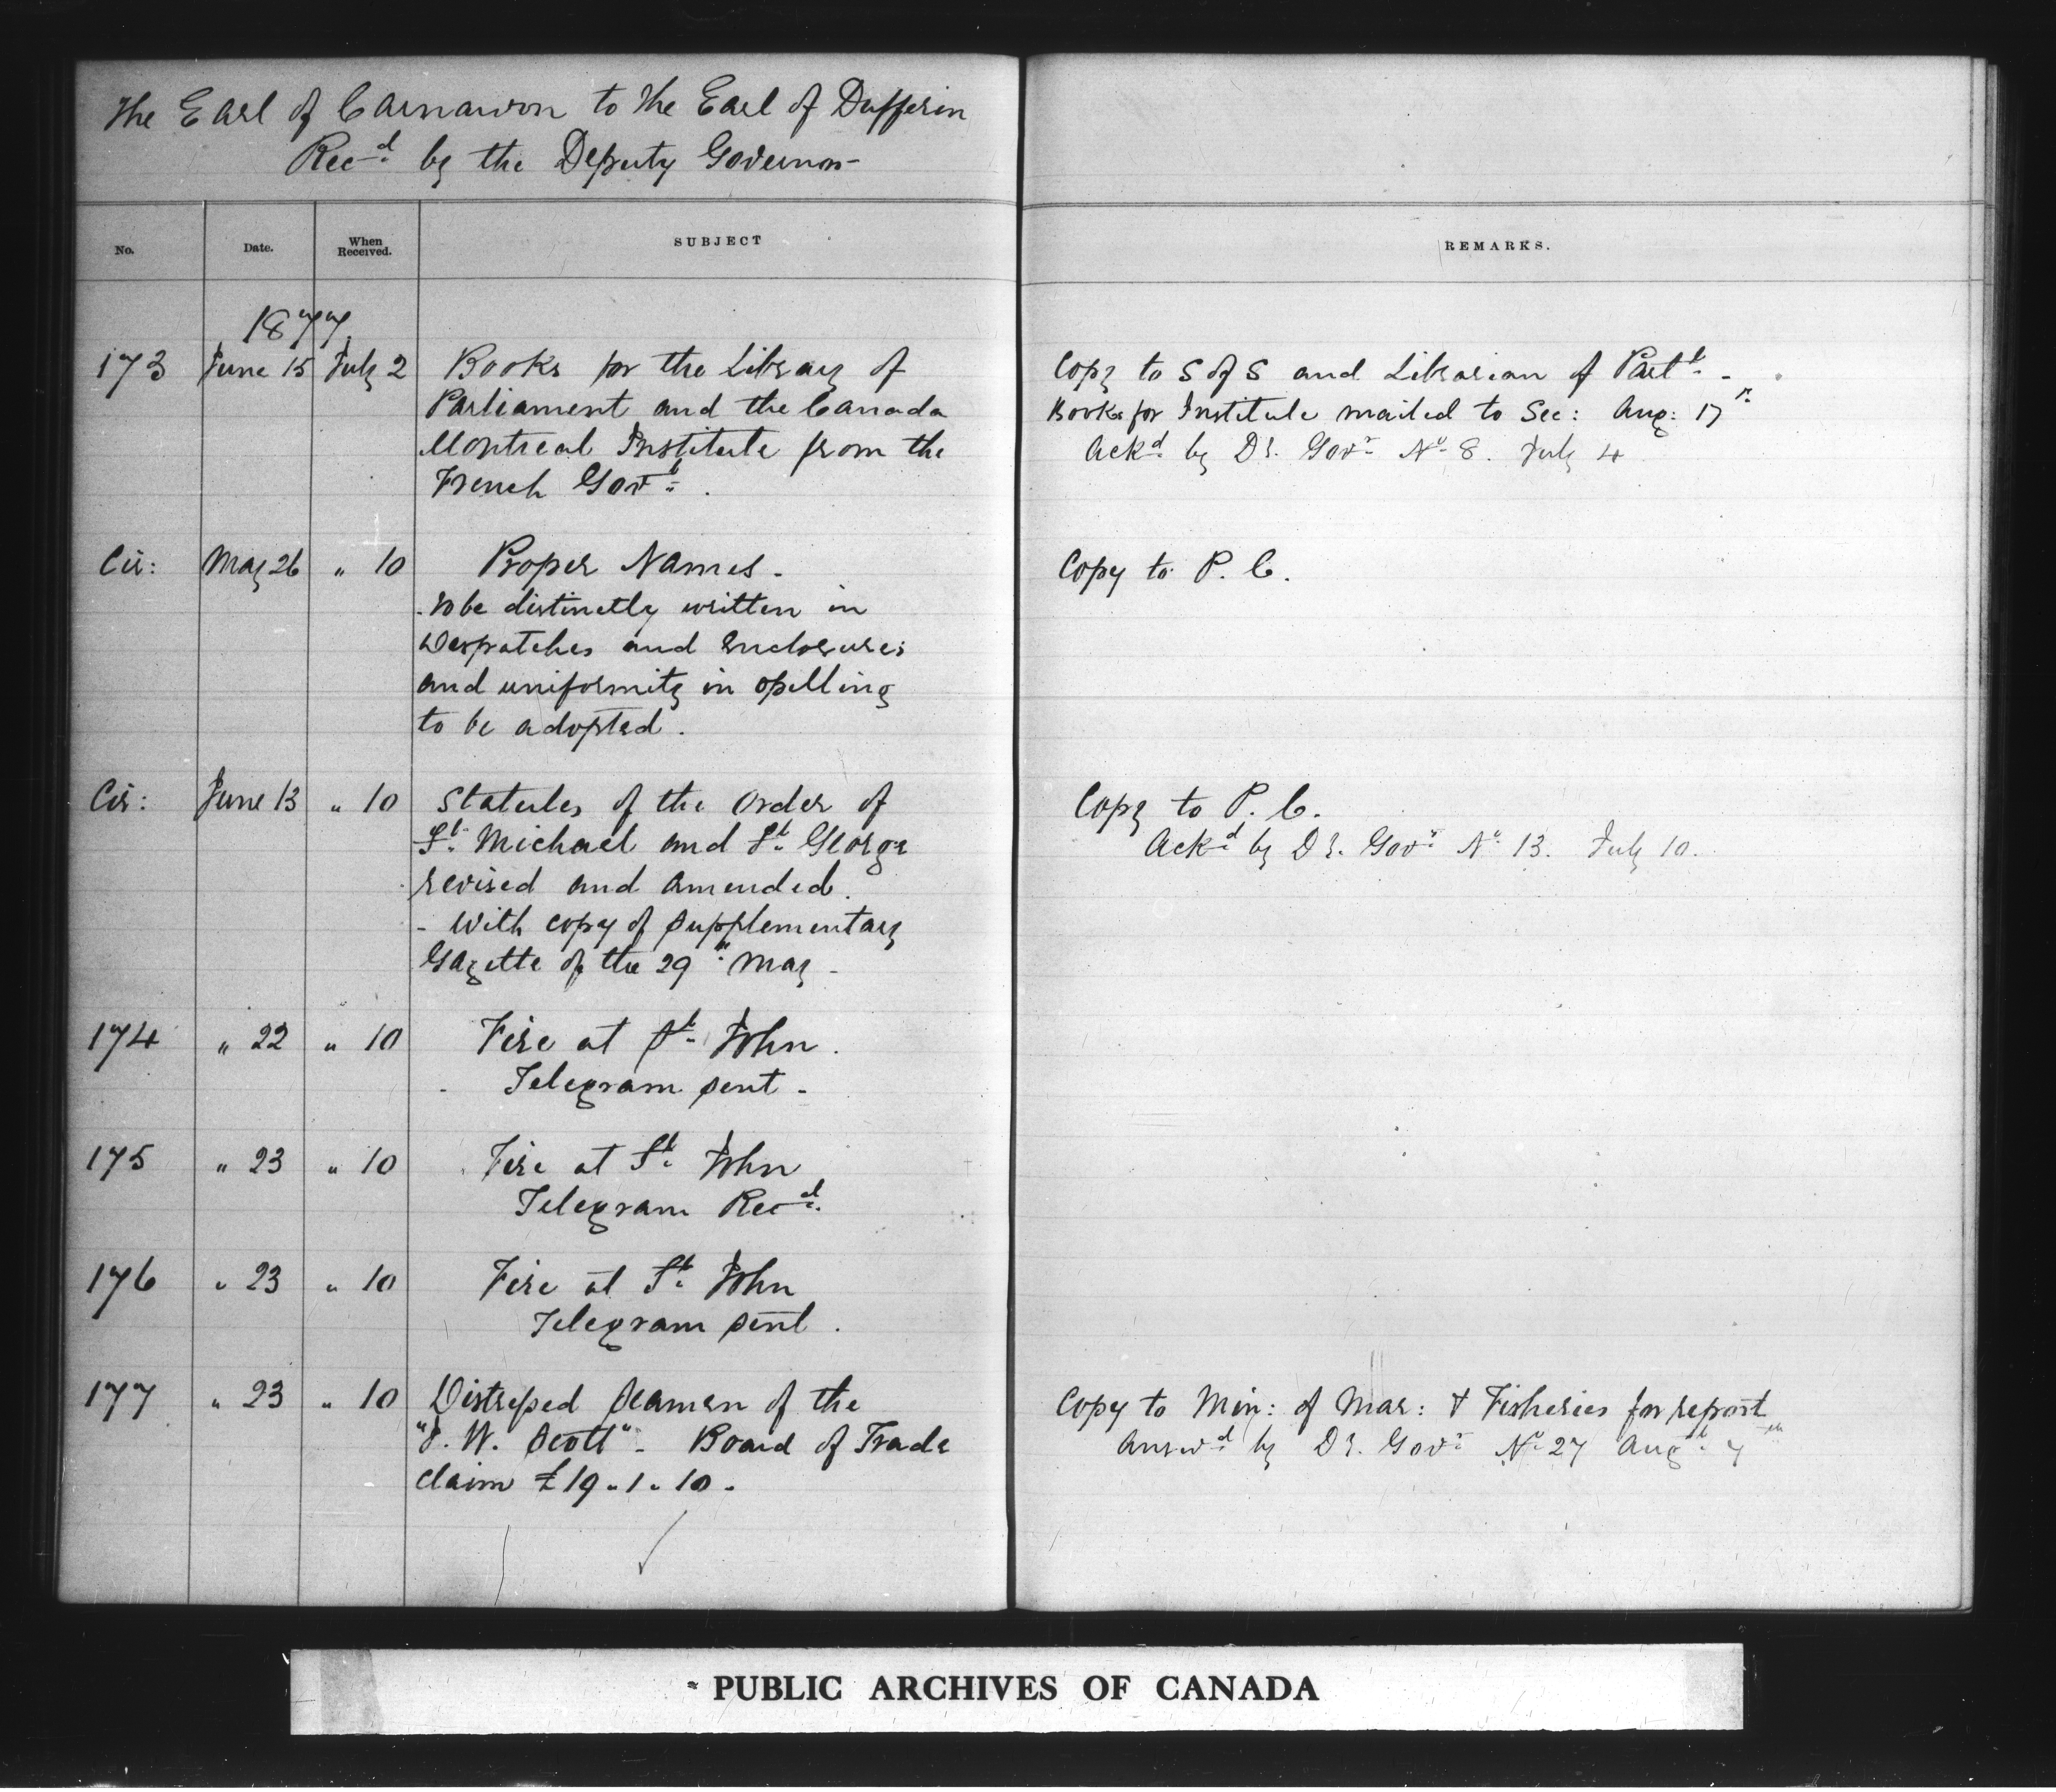 The Earl of Carnarvon to the Earl of Dufferin
Recd by the Deputy Governor
No. Date. When Received. SUBJECT REMARKS.
1877
173 June 15 July 2 Books for the Library of
Parliament and the Canada
Montreal Institute from the
French Govt.
Copy to S of S and Librarian of Parlt. -
Books for Institute mailed to Sec: Aug: 17
Ackd by Dy. Govr No 8. July 4
Cir: May 26 " 10 Proper Names -
- to be distinctly written in
Despatches and Enclosures
and uniformity in spelling
to be adopted.
Copy to P. C.
Cir: June 13 " 10 Statutes of the Order of
St. Michael and St. George
revised and amended.
- With copy of Supplementary
Gazette of the 29th May -
Copy to P. C.
Ackd by Dy. Govr No 13. July 10.
174 " 22 " 10 Fire at St. John.
Telegram sent -
175 " 23 " 10 Fire at St. John
Telegram Recd.
176 " 23 " 10 Fire at St. John
Telegram sent.
177 " 23 " 10 Distressed Seamen of the
W. Scott" - Board of Trade
claim £19.1.10.
Copy to Min: of Mar: & Fisheries for report
Answd by Dy. Govr No 27 Augt 7th
PUBLIC ARCHIVES OF CANADA